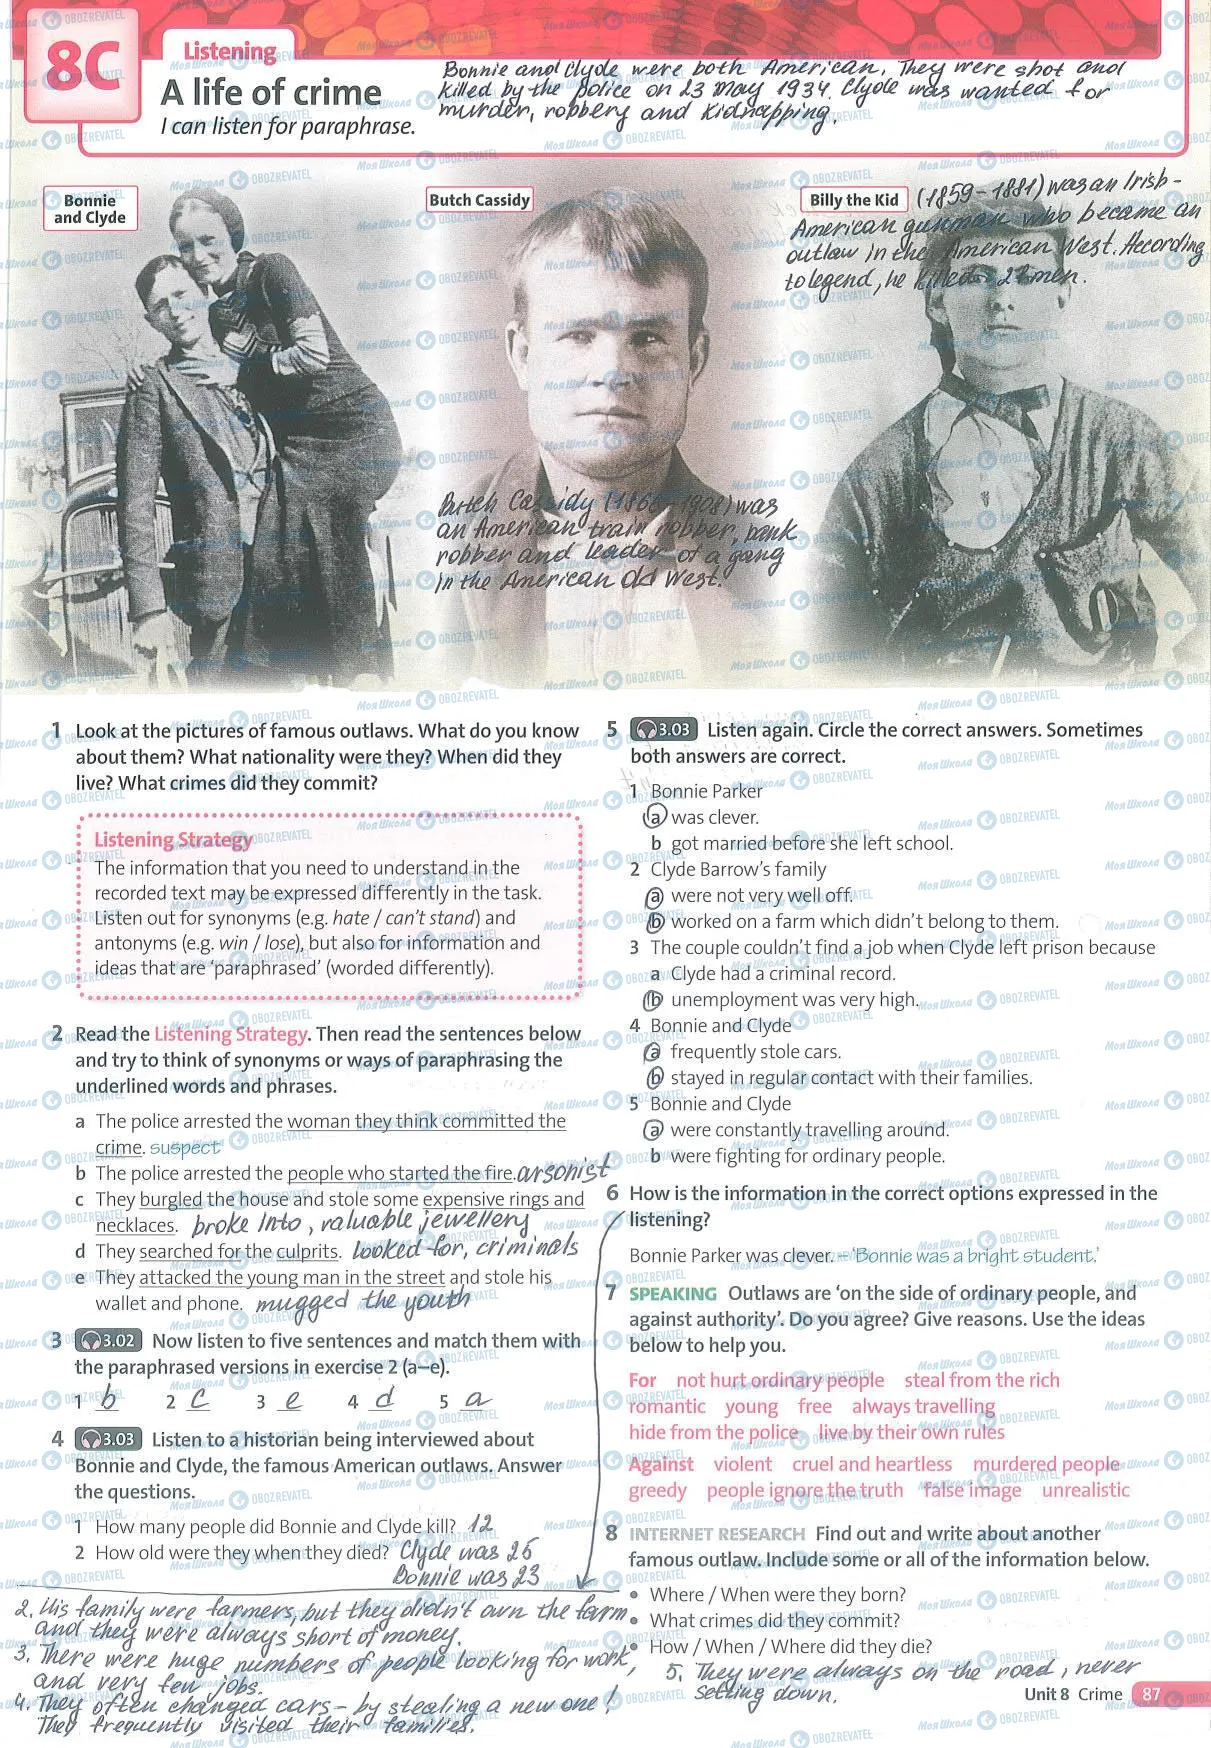 8C
Listening
A life of crime
I can listen for paraphrase.
Bonnie and Clyde were both American. They were shot and
killed by the police on 23 May 1934. Clyde was wanted for
murder, robbery and kidnapping.
Bonnie
and Clyde
Butch Cassidy
Billy the Kid
(1859-1881) was an Irish-
American gunman who became an
outlaw in the American West. According
to legend, he killed 21 men.
Butch Cassidy (1866-1908) was
an American train robber, bank
robber and leader of a gang
in the American Old West.
1 Look at the pictures of famous outlaws. What do you know
about them? What nationality were they? When did they
live? What crimes did they commit?
Listening Strategy
The information that you need to understand in the
recorded text may be expressed differently in the task.
Listen out for synonyms (e.g. hate / can't stand) and
antonyms (e.g. win / lose), but also for information and
ideas that are 'paraphrased' (worded differently).
2 Read the Listening Strategy. Then read the sentences below
and try to think of synonyms or ways of paraphrasing the
underlined words and phrases.
a The police arrested the woman they think committed the
crime. suspect
b The police arrested the people who started the fire. arsonist
c They burgled the house and stole some expensive rings and
necklaces. broke into, valuable jewellery
d They searched for the culprits. looked for, criminals
e They attacked the young man in the street and stole his
wallet and phone. mugged the youth
3 3.02 Now listen to five sentences and match them with
the paraphrased versions in exercise 2 (a–e).
1 b 2 c 3 e 4 d 5 a
4 3.03 Listen to a historian being interviewed about
Bonnie and Clyde, the famous American outlaws. Answer
the questions.
1 How many people did Bonnie and Clyde kill? 12
2 How old were they when they died? Clyde was 25
Bonnie was 23
2. His family were farmers, but they didn't own the farm
and they were always short of money.
3. There were huge numbers of people looking for work,
and very few jobs.
4. They often changed cars - by stealing a new one!
They frequently visited their families.
5 3.03 Listen again. Circle the correct answers. Sometimes
both answers are correct.
1 Bonnie Parker
a was clever.
b got married before she left school.
2 Clyde Barrow's family
a were not very well off.
b worked on a farm which didn't belong to them.
3 The couple couldn't find a job when Clyde left prison because
a Clyde had a criminal record.
b unemployment was very high.
4 Bonnie and Clyde
a frequently stole cars.
b stayed in regular contact with their families.
5 Bonnie and Clyde
a were constantly travelling around.
b were fighting for ordinary people.
6 How is the information in the correct options expressed in the
listening?
Bonnie Parker was clever. – 'Bonnie was a bright student.'
7 SPEAKING Outlaws are 'on the side of ordinary people, and
against authority'. Do you agree? Give reasons. Use the ideas
below to help you.
For not hurt ordinary people steal from the rich
romantic young free always travelling
hide from the police live by their own rules
Against violent cruel and heartless murdered people
greedy people ignore the truth false image unrealistic
8 INTERNET RESEARCH Find out and write about another
famous outlaw. Include some or all of the information below.
• Where / When were they born?
• What crimes did they commit?
• How / When / Where did they die?
5. They were always on the road, never
settling down.
Unit 8 Crime 87
МояШкола OBOZREVATEL